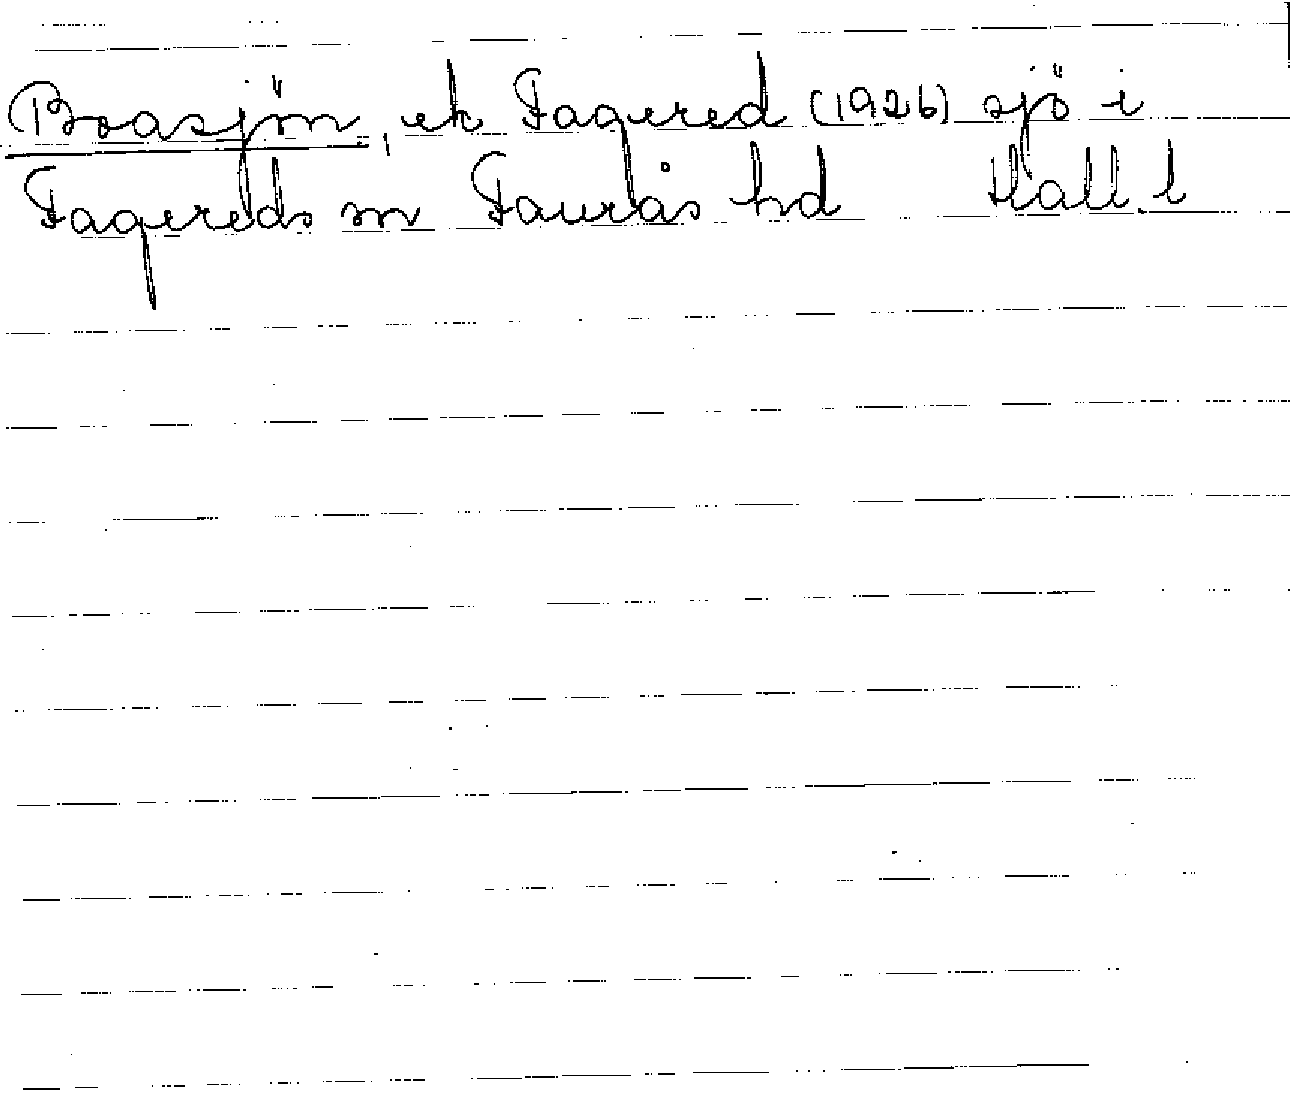 Boasjön, ek Fagered (1926) sjö i
Fagereds sn Faurås hd Hall. l